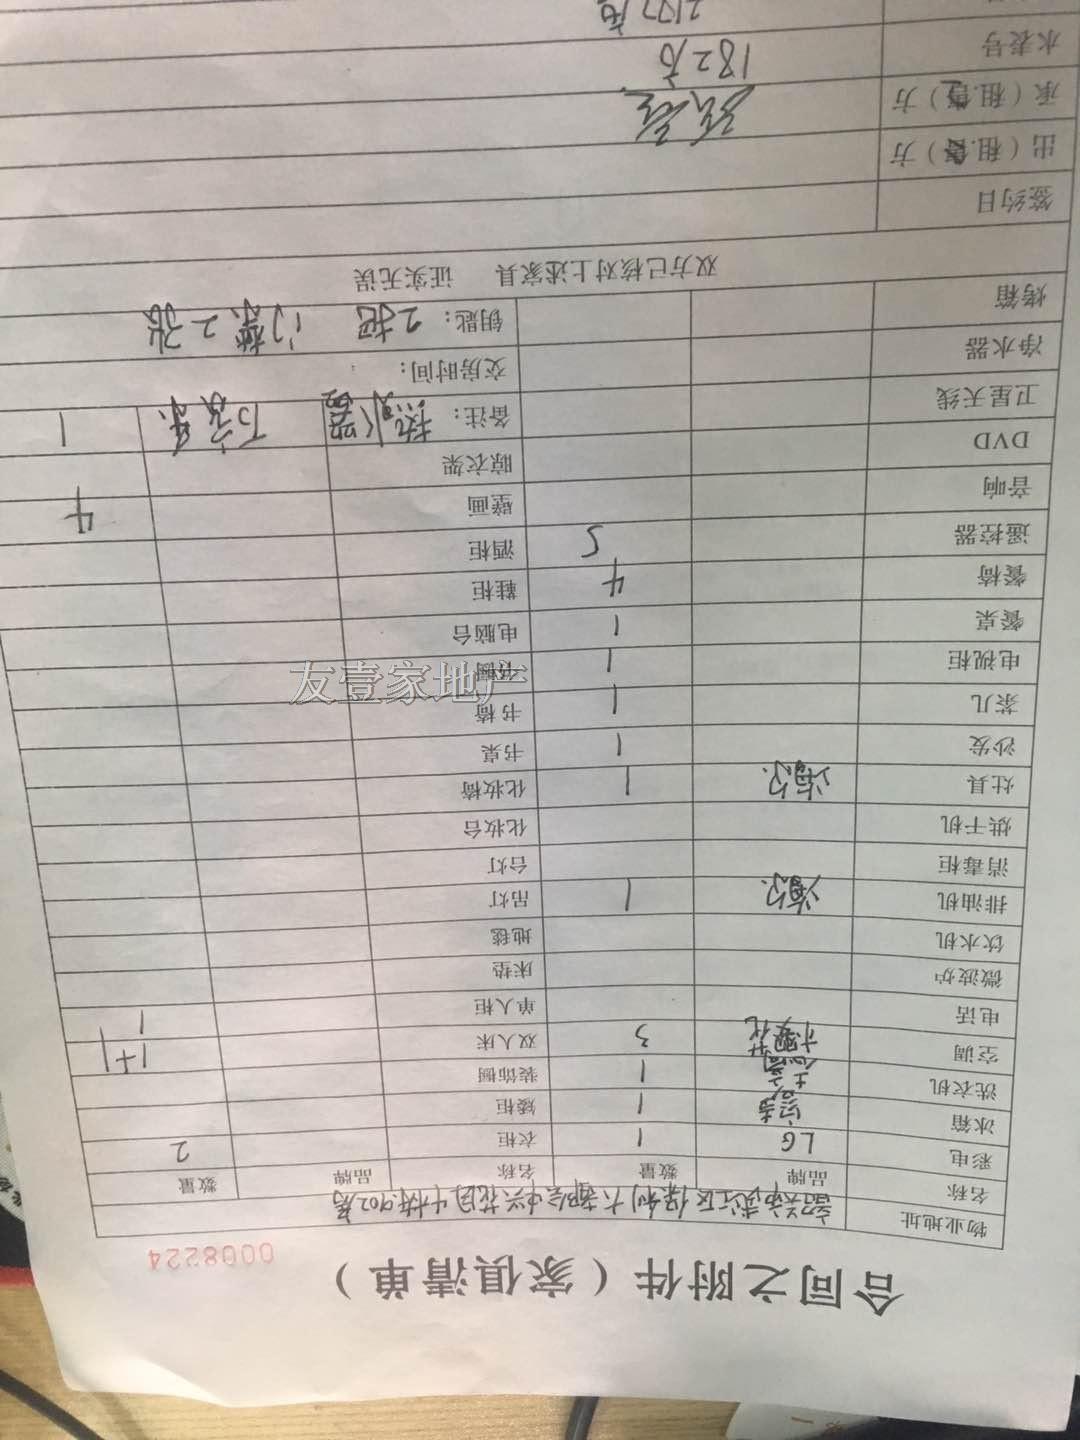 合同之附件（家俱清单）
0008224
物业地址 韶关市武江区保利大都会中兴花园 902房
名称 品牌 数量 名称 品牌 数量
彩电 LG 1 衣柜 2
冰箱 1 矮柜
洗衣机 1 装饰橱
空调 3 双人床 1+1
电话 单人柜 1
微波炉 床垫
饮水机 地毯
排油机 海尔 1 吊灯
消毒柜 台灯
烘干机 化妆台
灶具 海尔 1 化妆椅
沙发 1 书桌
茶几 1 书椅
电视柜 1 书橱
餐桌 1 电脑台
餐椅 4 鞋柜
遥控器 5 酒柜
音响 壁画 4
DVD 晾衣架
卫星天线 备注：热水器 万家乐 1
净水器 交房时间：
烤箱 钥匙：2把 门禁2张
双方已核对上述家具 证实无误
签约日
出（租.售）方
承（租.售）方
水表号 182方
友壹家地产